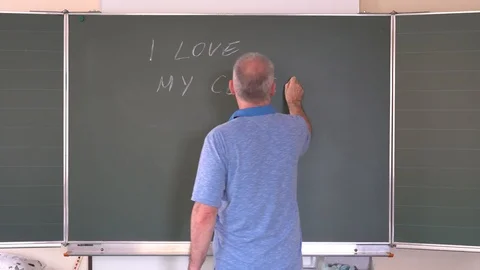 I LOVE
MY